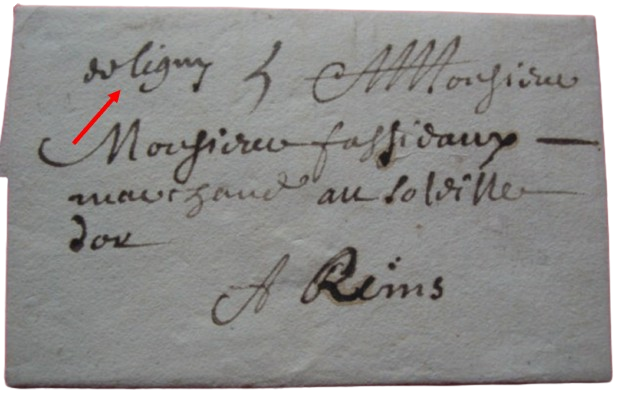 de ligny 5 A Monsieur
Monsieur fassieaux
marchand au soleille
dor
A Reims